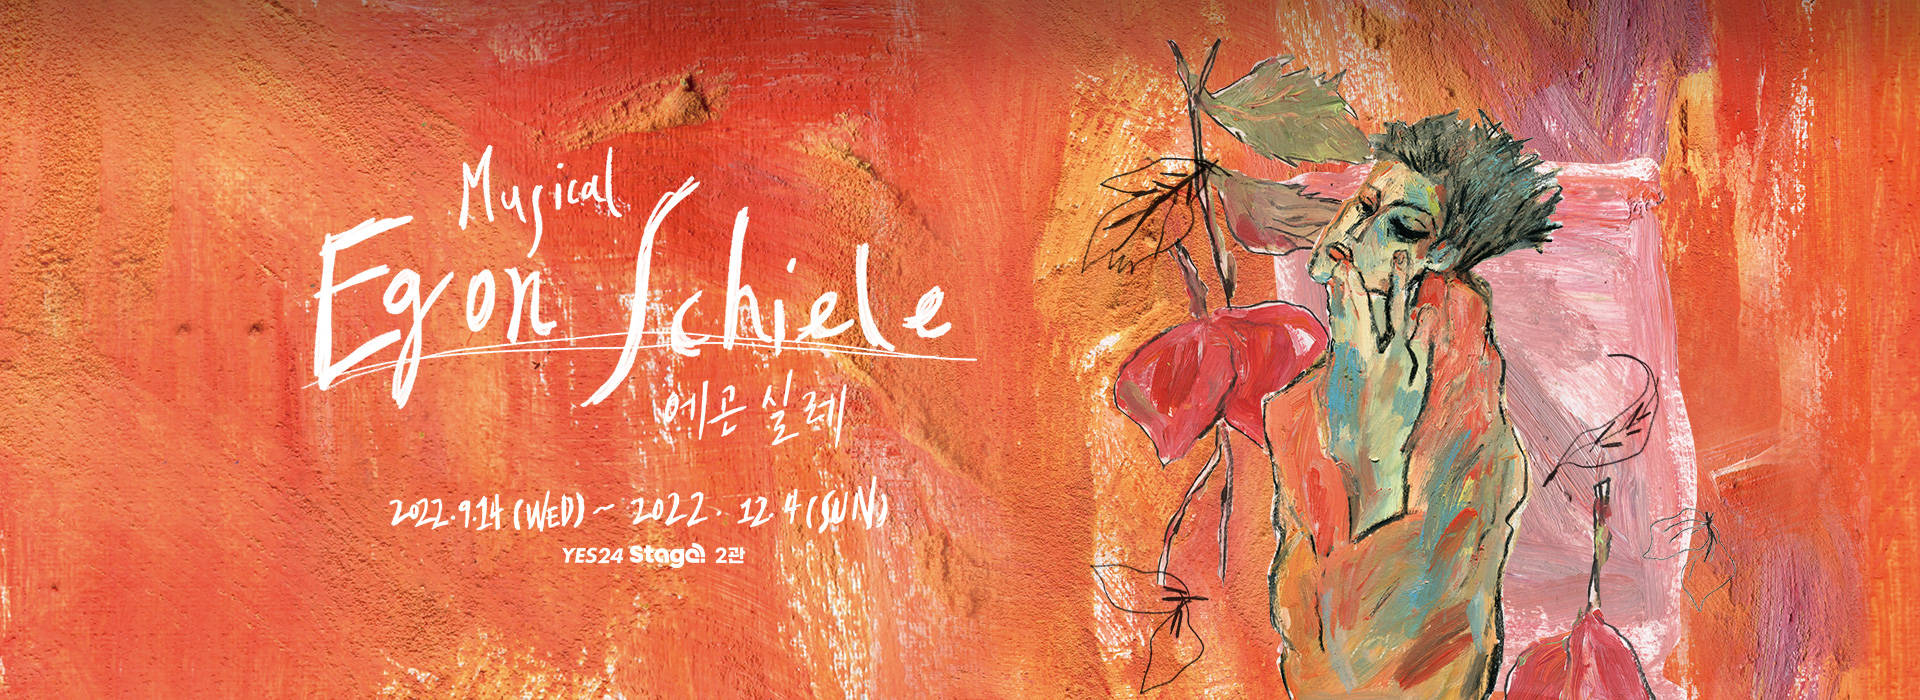 Musical
Egon Schiele
에곤 실레
2022.9.14 (WED) ~ 2022. 12. 4 (SUN)
YES24 Stage 2관